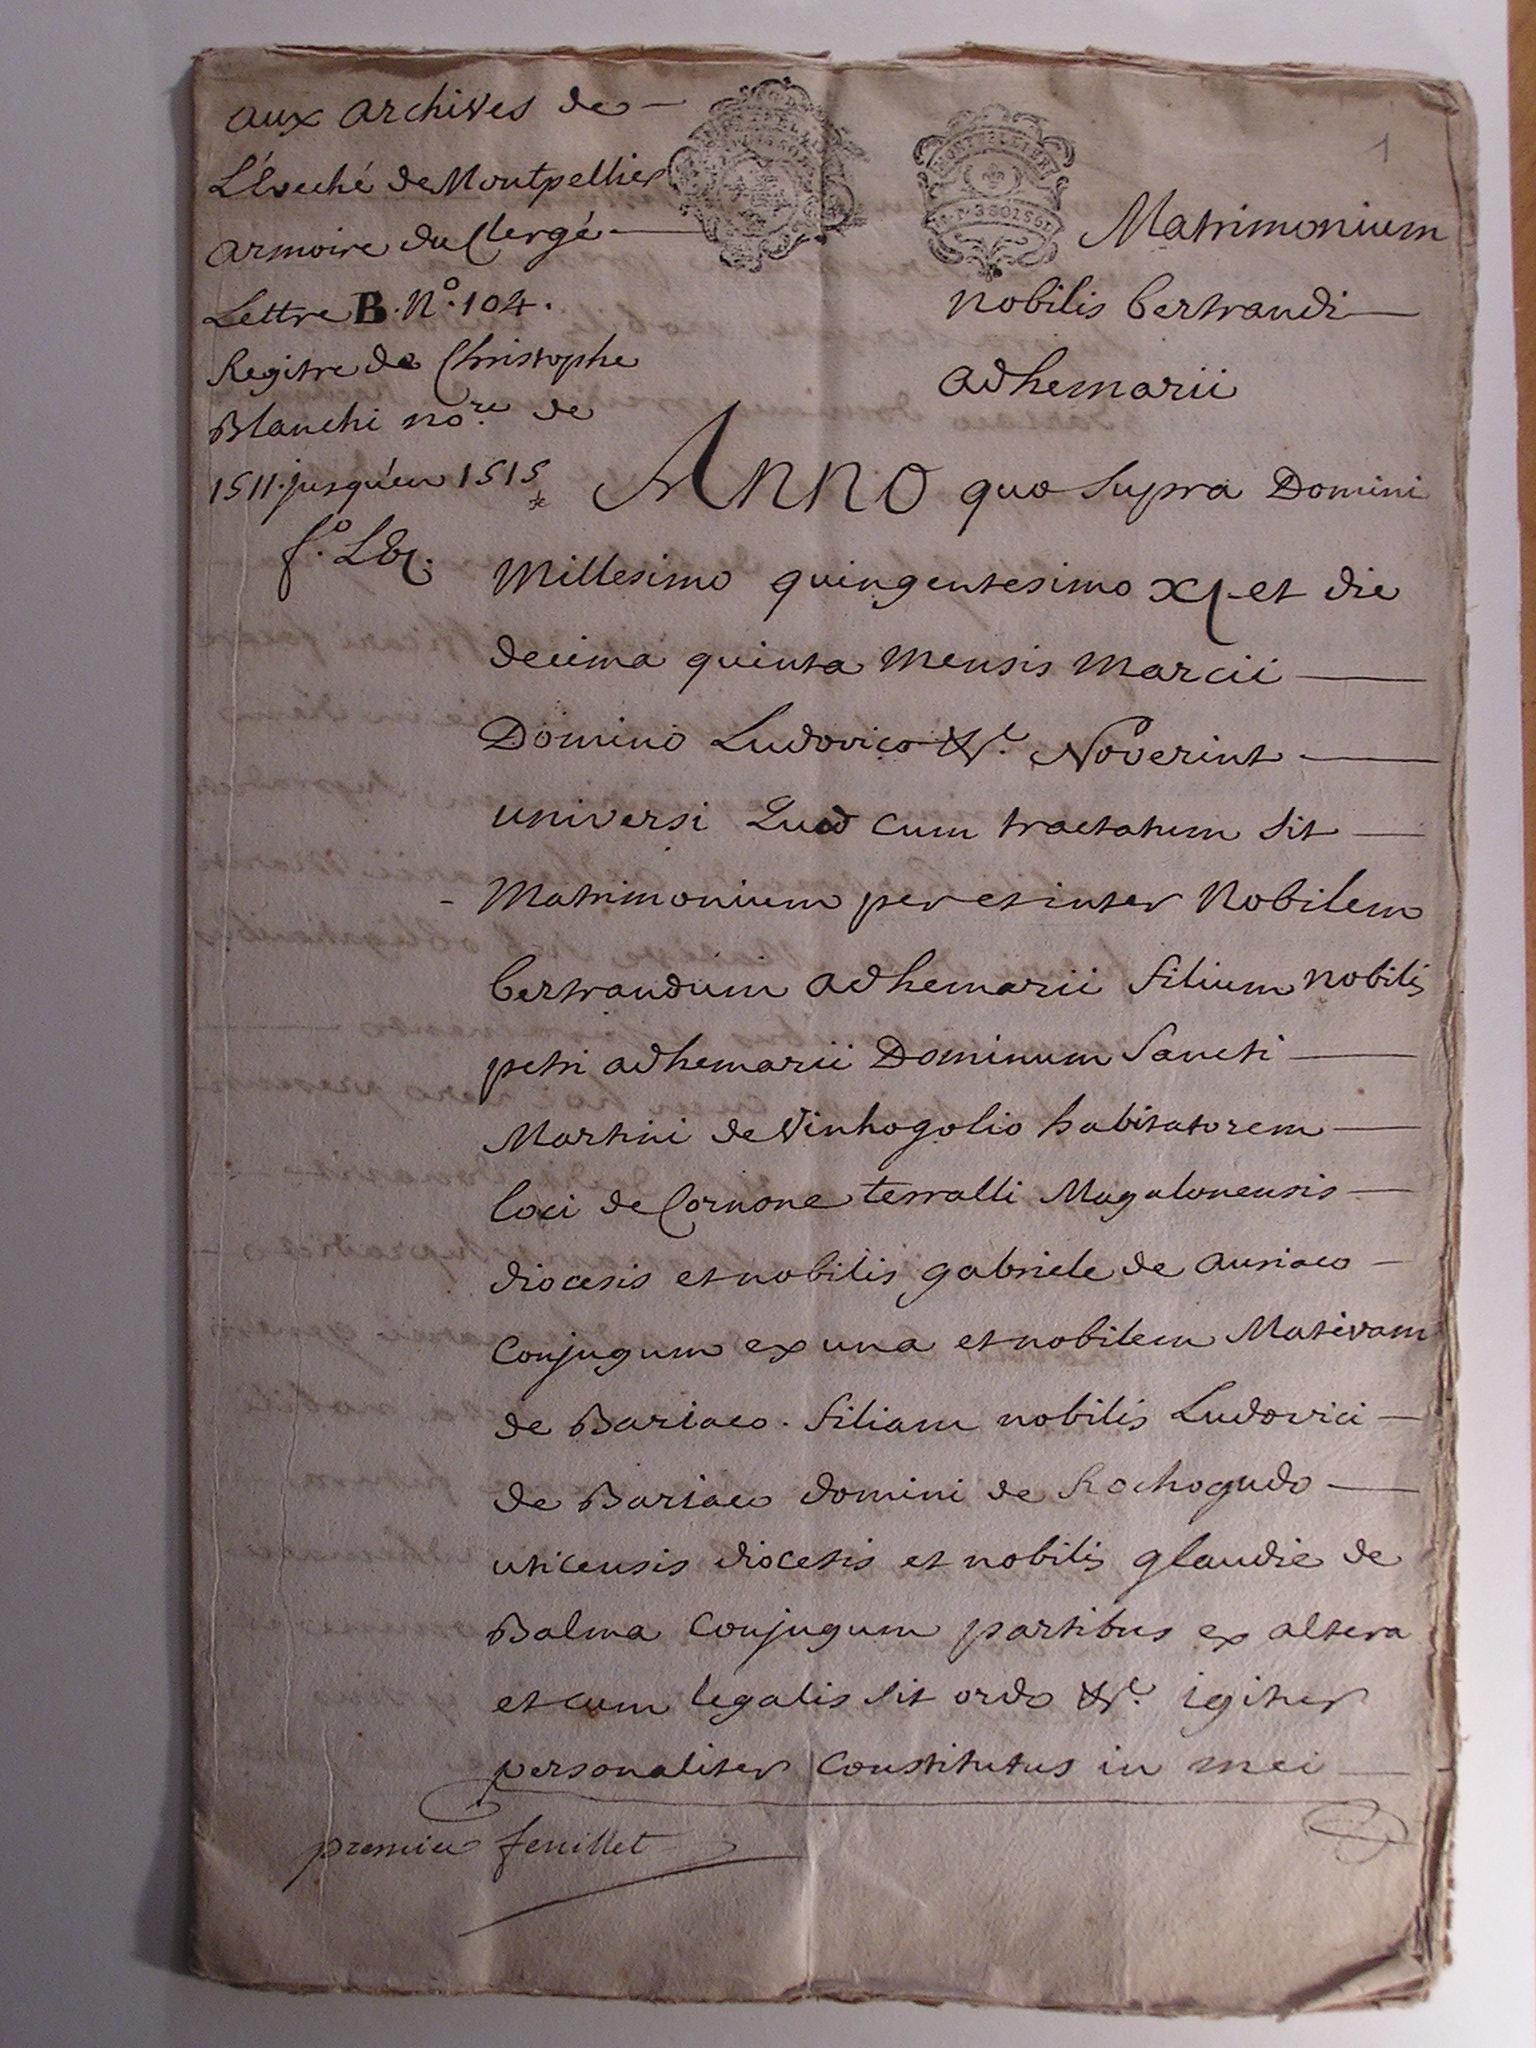 aux archives de
L'évêché de Montpellier
armoire du Clergé
Lettre B. N.º 104.
Registre de Christophe
Blanchi no.re de
1511. jusqu'en 1515
f.º
MONTPELLIER
1
Matrimonium
nobilis bertrandi
adhemarii
Anno quo supra Domini
Millesimo quingentesimo XI et die
decima quinta mensis marcii
Domino Ludovico &c. Noverint
universi Quod cum tractatum sit
Matrimonium per et inter Nobilem
bertrandum adhemarii filium nobilis
petri adhemarii Dominum Sancti
Martini de Vinhogolio habitatorem
loci de Cornone terralli Magalonensis
diocesis et nobilis gabriele de auriaco
Conjugum ex una et nobilem Mativam
de Bariaco. filiam nobilis Ludovici
de Bariaco domini de Rochogudo
uticensis diocesis et nobilis glaudie de
Balma Conjugum partibus ex altera
et cum legalis sit ordo &c. igitur
personaliter Constitutus in mei
premier feuillet